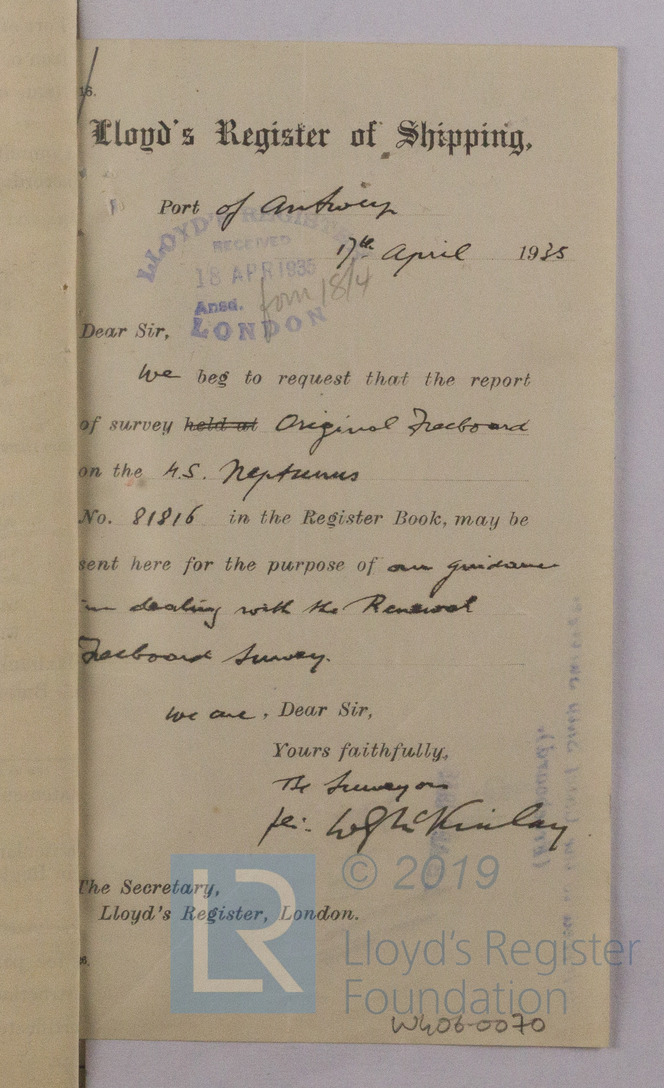 16.
Lloyd's Register of Shipping,
Port of Antwerp
17th April 1935
LLOYD'S REGISTER
RECEIVED
18 APR 1935
Ansd. 18/4
LONDON
Dear Sir,
We beg to request that the report
of survey held at Original Freeboard
on the M.S. Neptunus
No. 81816 in the Register Book, may be
sent here for the purpose of our guidance
in dealing with the Renewal
Freeboard Survey.
We are, Dear Sir,
Yours faithfully,
The Surveyors
per: McKinlay
The Secretary,
Lloyd's Register, London.
© 2019
LR
Lloyd's Register
Foundation
W406-0070